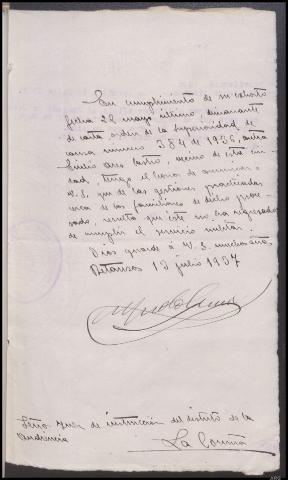 En cumplimiento de su exhorto
fecha 28 mayo último, dimanante
de carta orden de la Superioridad de
causa número 384 de 1936, contra
Emilio Ares Castro, vecino de esta ciu-
dad, tengo el honor de comunicar a
V.S. que de las gestiones practicadas
cerca de los familiares de dicho proce-
sado, resulta que este no ha regresado
de cumplir el servicio militar.
Dios guarde á V.S. muchos años
Betanzos 13 julio 1937
Señor Juez de instrucción del distrito de la
Audiencia
La Coruña